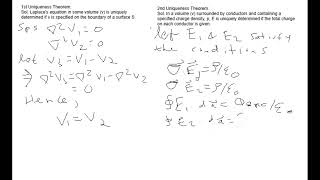 1st Uniqueness Theorem.
Sol: Laplace's equation in some volume (v) is uniquely
determined if v is specified on the boundary of a surface S.
Sps ∇²V₁=0
∇²V₂=0
let V₃=V₁-V₂
⇒ ∇²V₃=∇²V₁-∇²V₂
=0
Hence,
V₁=V₂
2nd Uniqueness Theorem.
Sol: In a volume (v) surrounded by conductors and containing a
specified charge density, ρ, E is uniquely determined if the total charge
on each conductor is given.
Let E₁ & E₂ satisfy
the conditions
∇E₁=ρ/ε₀
∇E₂=ρ/ε₀
∮E₁ da=
∮E₂ da=